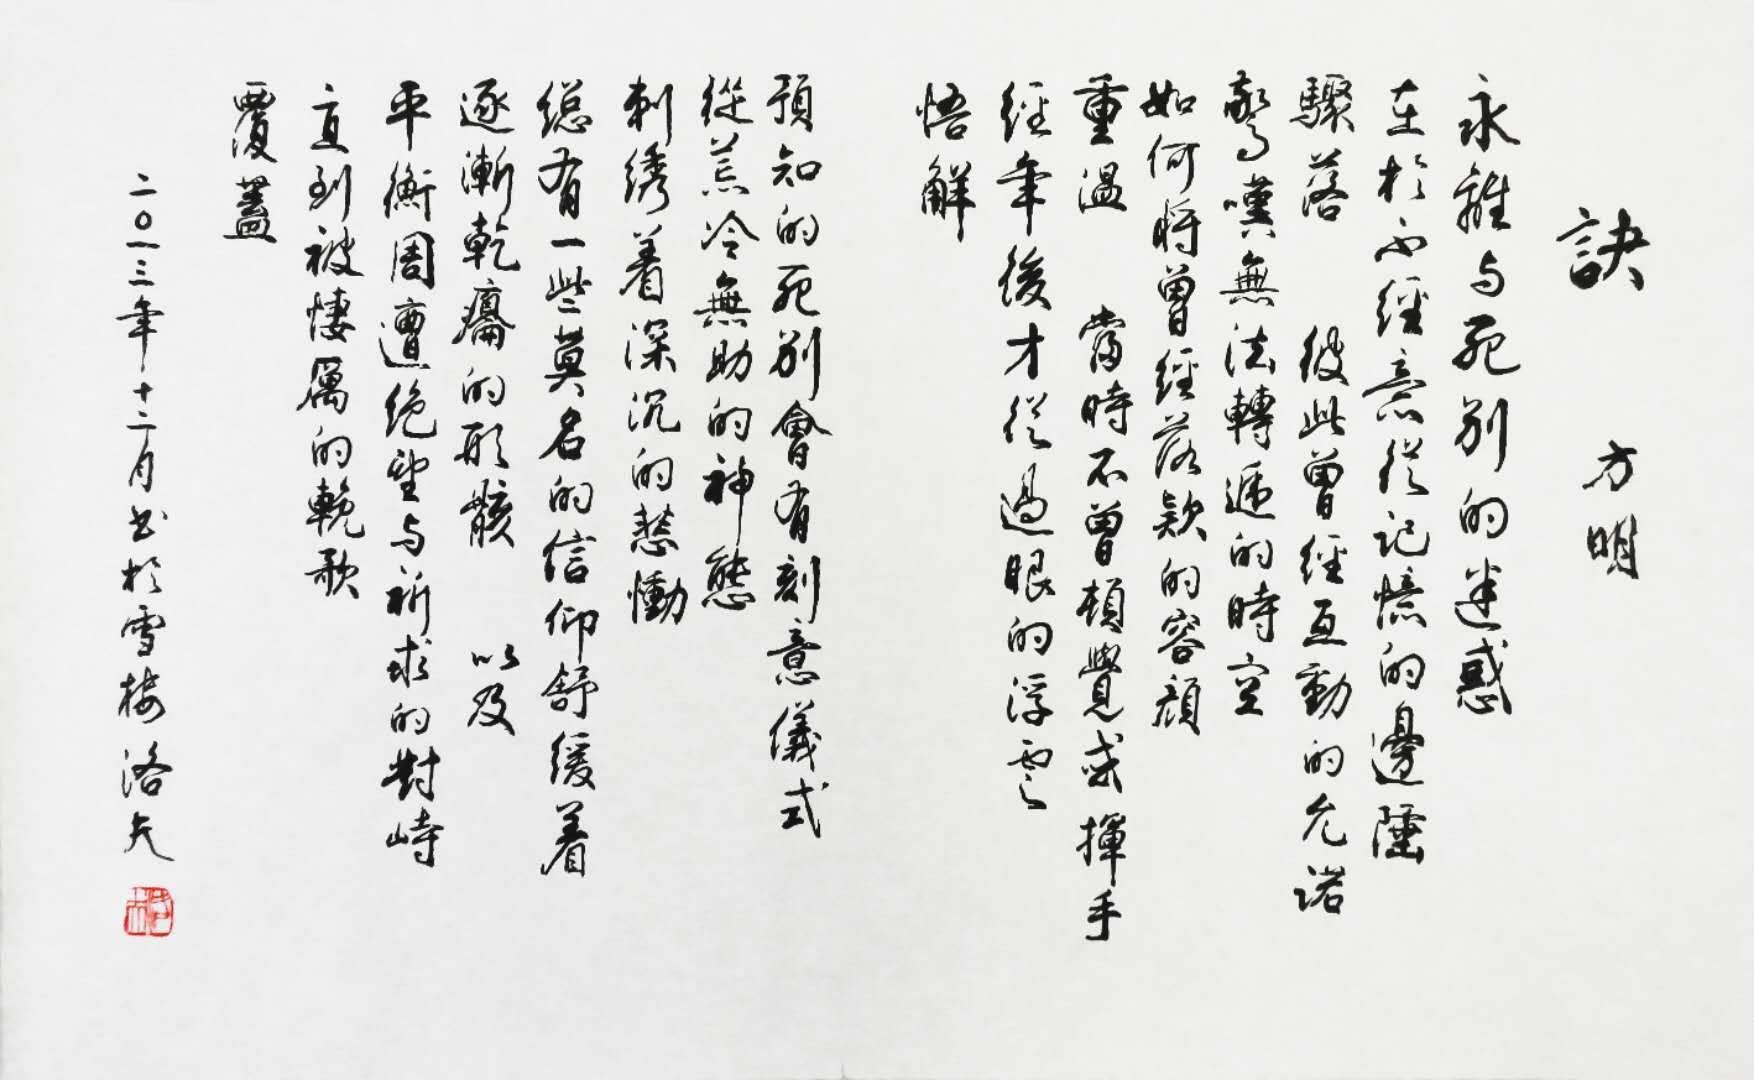 訣 方明
永離与死別的迷惑
在於不經意從記憶的邊陲
驟落 彼此曾經互動的允諾
驚嘆無法轉遞的時空
如何將曾經落款的容顏
重溫 當時不曾頓覺或揮手
經年後才從過眼的浮雲
悟解
預知的死別會有刻意儀式
從荒冷無助的神態
刺綉着深沉的悲慟
總有一些莫名的信仰舒緩着
逐漸乾癟的形骸 以及
平衡周遭絶望与祈求的對峙
直到被悽厲的輓歌
覆蓋
二〇一三年十二月书於雪樓 洛夫